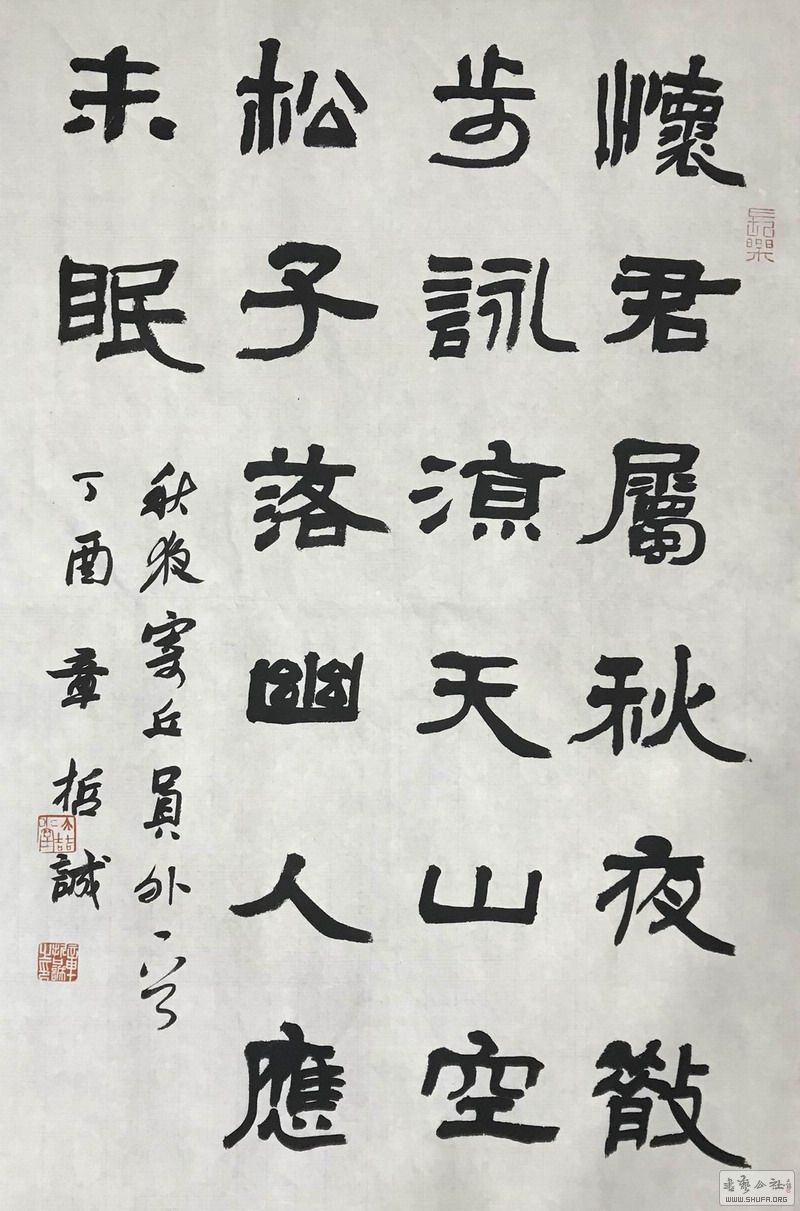 懷君屬秋夜散
步詠涼天山空
松子落幽人應
未眠
秋夜寄丘員外一首
丁酉章哲誠
長樂
书艺公社
WWW.SHUFA.ORG